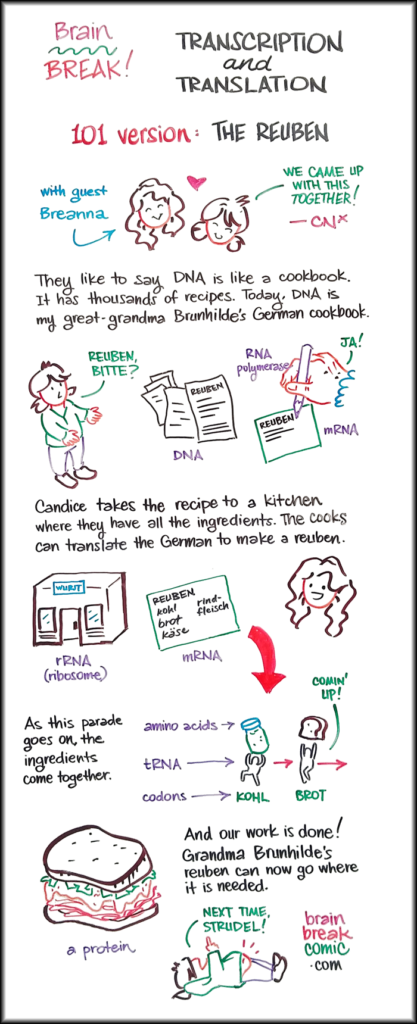 Brain
BREAK!
TRANSCRIPTION
and
TRANSLATION
101 version: THE REUBEN
with guest
Breanna
WE CAME UP
WITH THIS
TOGETHER!
— CNX
They like to say, DNA is like a cookbook.
It has thousands of recipes. Today, DNA is
my great-grandma Brunhilde's German cookbook.
REUBEN,
BITTE?
REUBEN
DNA
RNA
polymerase
JA!
REUBEN
mRNA
Candice takes the recipe to a kitchen
where they have all the ingredients. The cooks
can translate the German to make a reuben.
WURST
rRNA
(ribosome)
REUBEN
kohl
brot
käse
rind-
fleisch
mRNA
As this parade
goes on, the
ingredients
come together.
COMIN'
UP!
amino acids
tRNA
codons
KOHL
BROT
And our work is done!
Grandma Brunhilde's
reuben can now go where
it is needed.
a protein
NEXT TIME,
STRUDEL!
brain
break
comic
.com